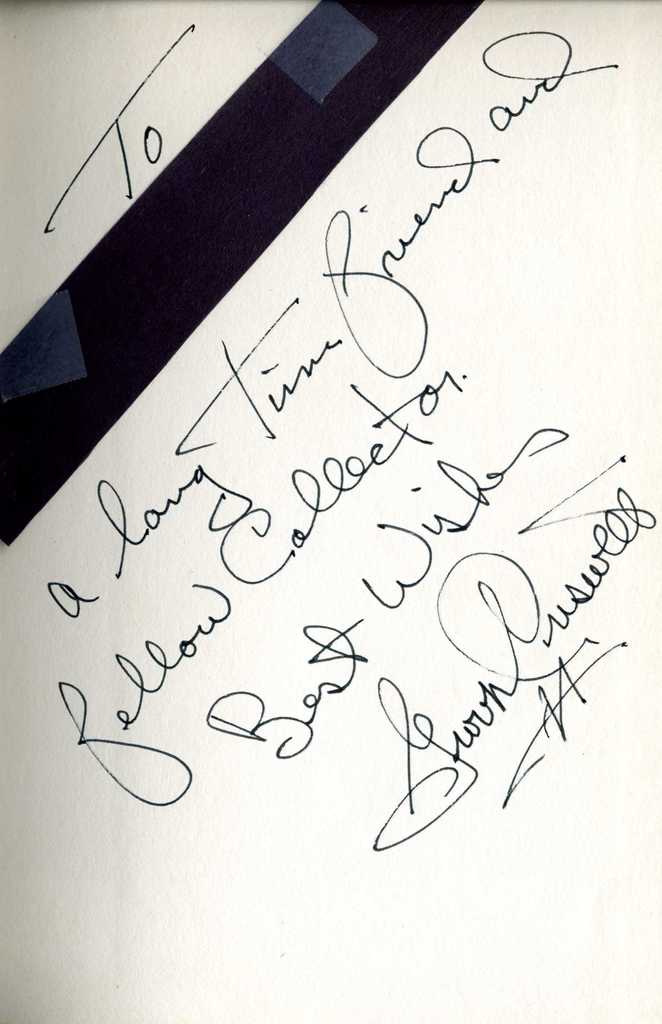 To
a Long Time Friend and
fellow Collector.
Best Wishes